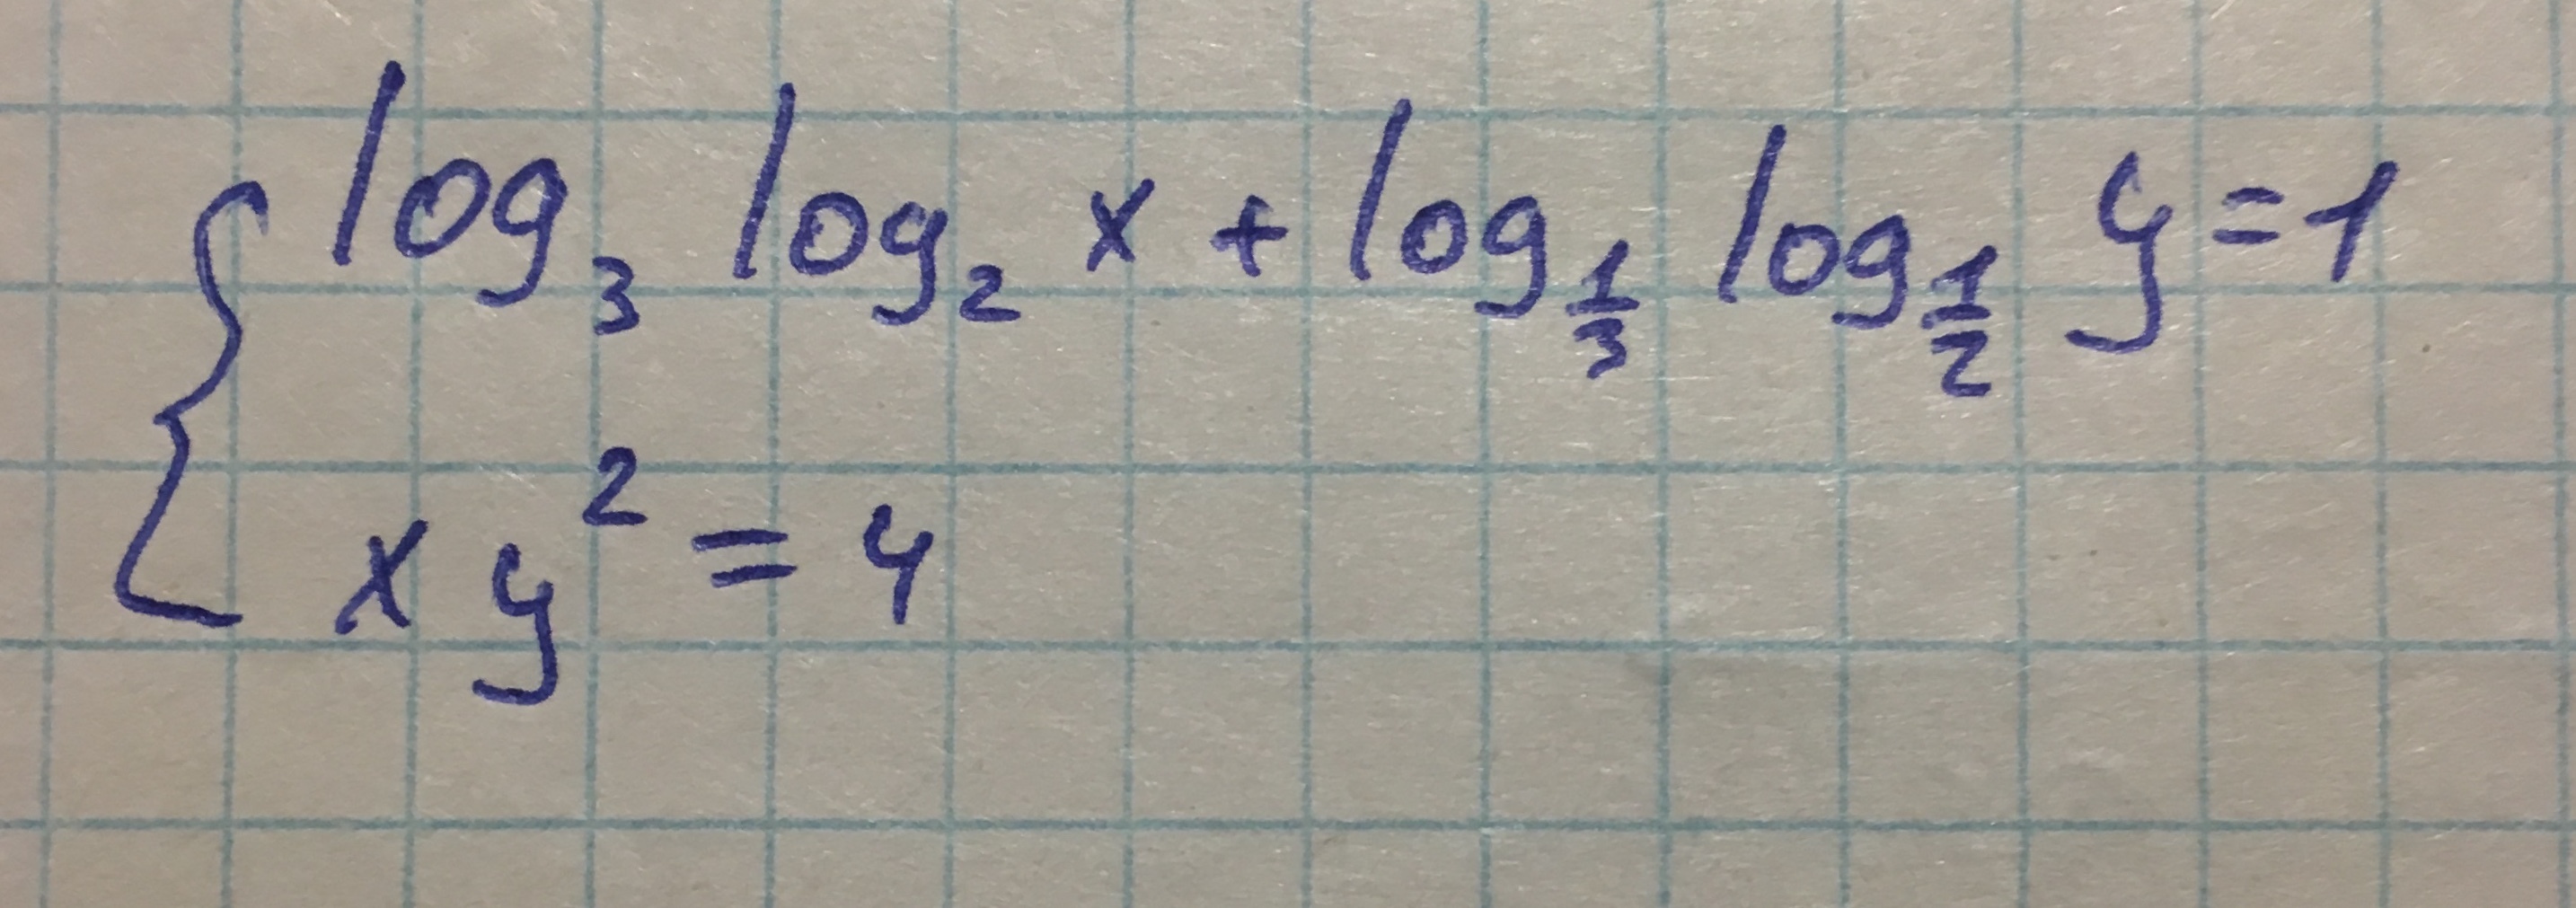 log₃ log₂ x + log_{1/3} log_{1/2} y = 1
xy² = 4